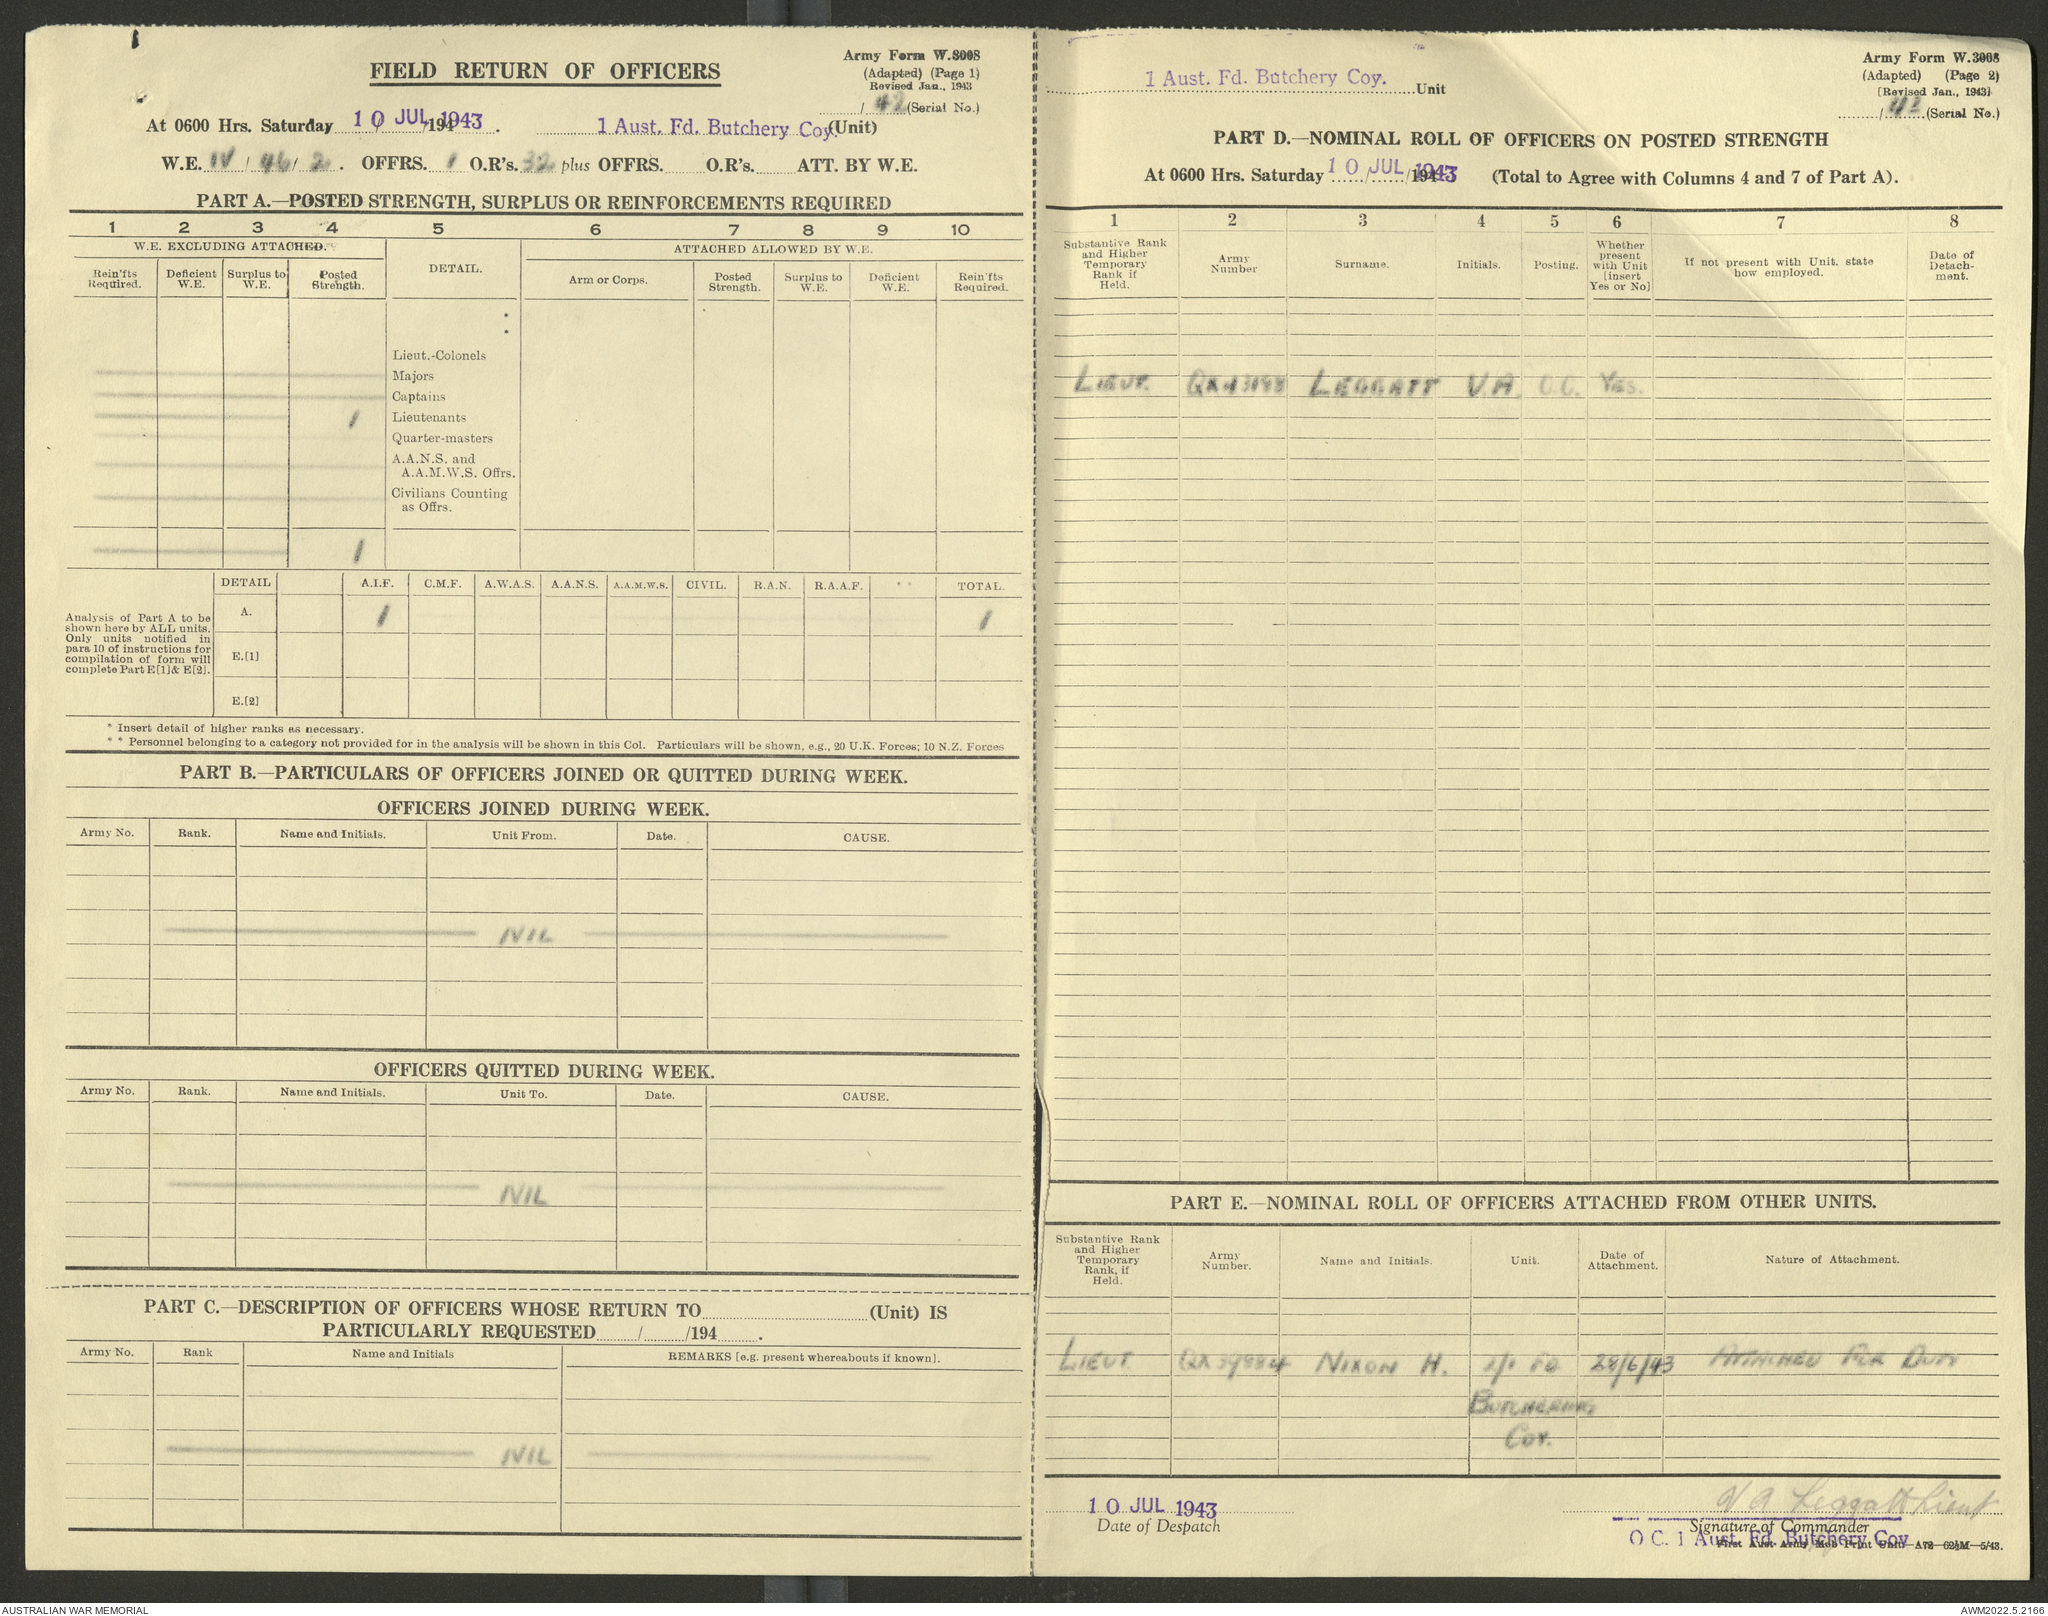 FIELD RETURN OF OFFICERS
Army Form W.3008
(Adapted) (Page 1)
Revised Jan., 1943
/ 42 (Serial No.)
At 0600 Hrs. Saturday 10 JUL 1943 /194 . 1 Aust. Fd. Butchery Coy. (Unit)
W.E. IV / 46 / 2 . OFFRS. 1 O.R's. 32 plus OFFRS. O.R's. ATT. BY W.E.
PART A.—POSTED STRENGTH, SURPLUS OR REINFORCEMENTS REQUIRED
1 2 3 4 5 6 7 8 9 10
W.E. EXCLUDING ATTACHED. DETAIL. ATTACHED ALLOWED BY W.E.
Rein'fts Required. Deficient W.E. Surplus to W.E. Posted Strength. Arm or Corps. Posted Strength. Surplus to W.E. Deficient W.E. Rein'fts Required.
*
*
Lieut.-Colonels
Majors
Captains
1 Lieutenants
Quarter-masters
A.A.N.S. and
A.A.M.W.S. Offrs.
Civilians Counting
as Offrs.
1
DETAIL A.I.F. C.M.F. A.W.A.S. A.A.N.S. A.A.M.W.S. CIVIL. R.A.N. R.A.A.F. * * TOTAL.
Analysis of Part A to be
shown here by ALL units.
Only units notified in
para 10 of instructions for
compilation of form will
complete Part E[1] & E[2].
A. 1 1
E.[1]
E.[2]
* Insert detail of higher ranks as necessary.
* * Personnel belonging to a category not provided for in the analysis will be shown in this Col. Particulars will be shown, e.g., 20 U.K. Forces; 10 N.Z. Forces
PART B.—PARTICULARS OF OFFICERS JOINED OR QUITTED DURING WEEK.
OFFICERS JOINED DURING WEEK.
Army No. Rank. Name and Initials. Unit From. Date. CAUSE.
NIL
OFFICERS QUITTED DURING WEEK.
Army No. Rank. Name and Initials. Unit To. Date. CAUSE.
NIL
PART C.—DESCRIPTION OF OFFICERS WHOSE RETURN TO (Unit) IS
PARTICULARLY REQUESTED / /194 .
Army No. Rank Name and Initials REMARKS [e.g. present whereabouts if known].
NIL
1 Aust. Fd. Butchery Coy. Unit
Army Form W.3008
(Adapted) (Page 2)
[Revised Jan., 1943]
/ 42 (Serial No.)
PART D.—NOMINAL ROLL OF OFFICERS ON POSTED STRENGTH
At 0600 Hrs. Saturday 10 JUL 1943 / /194 (Total to Agree with Columns 4 and 7 of Part A).
1 2 3 4 5 6 7 8
Substantive Rank and Higher Temporary Rank if Held. Army Number Surname. Initials. Posting. Whether present with Unit [insert Yes or No] If not present with Unit, state how employed. Date of Detachment.
LIEUT. LEGGATT V.A. O.C. YES.
PART E.—NOMINAL ROLL OF OFFICERS ATTACHED FROM OTHER UNITS.
Substantive Rank and Higher Temporary Rank, if Held. Army Number. Name and Initials. Unit. Date of Attachment. Nature of Attachment.
LIEUT. QX39884 NIXON H. FD 28/6/43 ATTACHED FOR DUTY
BUTCHERING
COY.
10 JUL 1943
Date of Despatch
V A Leggatt Lieut
Signature of Commander
O C. 1 Aust. Fd. Butchery Coy
First Aust Army Mob Print Unit—A72—62½M—5/43.
AUSTRALIAN WAR MEMORIAL
AWM2022.5.2166